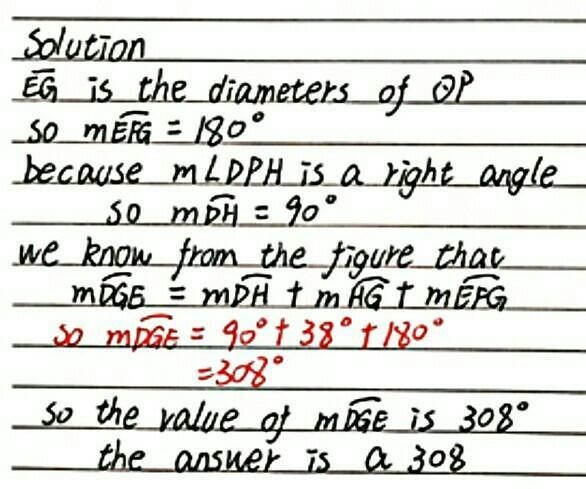 Solution
E͞G is the diameters of ⊙P
so m⌒EFG = 180°
because m∠DPH is a right angle
so m⌒DH = 90°
we know from the figure that
m⌒DGE = m⌒DH + m⌒HG + m⌒EFG
so m⌒DGE = 90° + 38° + 180°
=308°
so the value of m⌒DGE is 308°
the answer is a 308